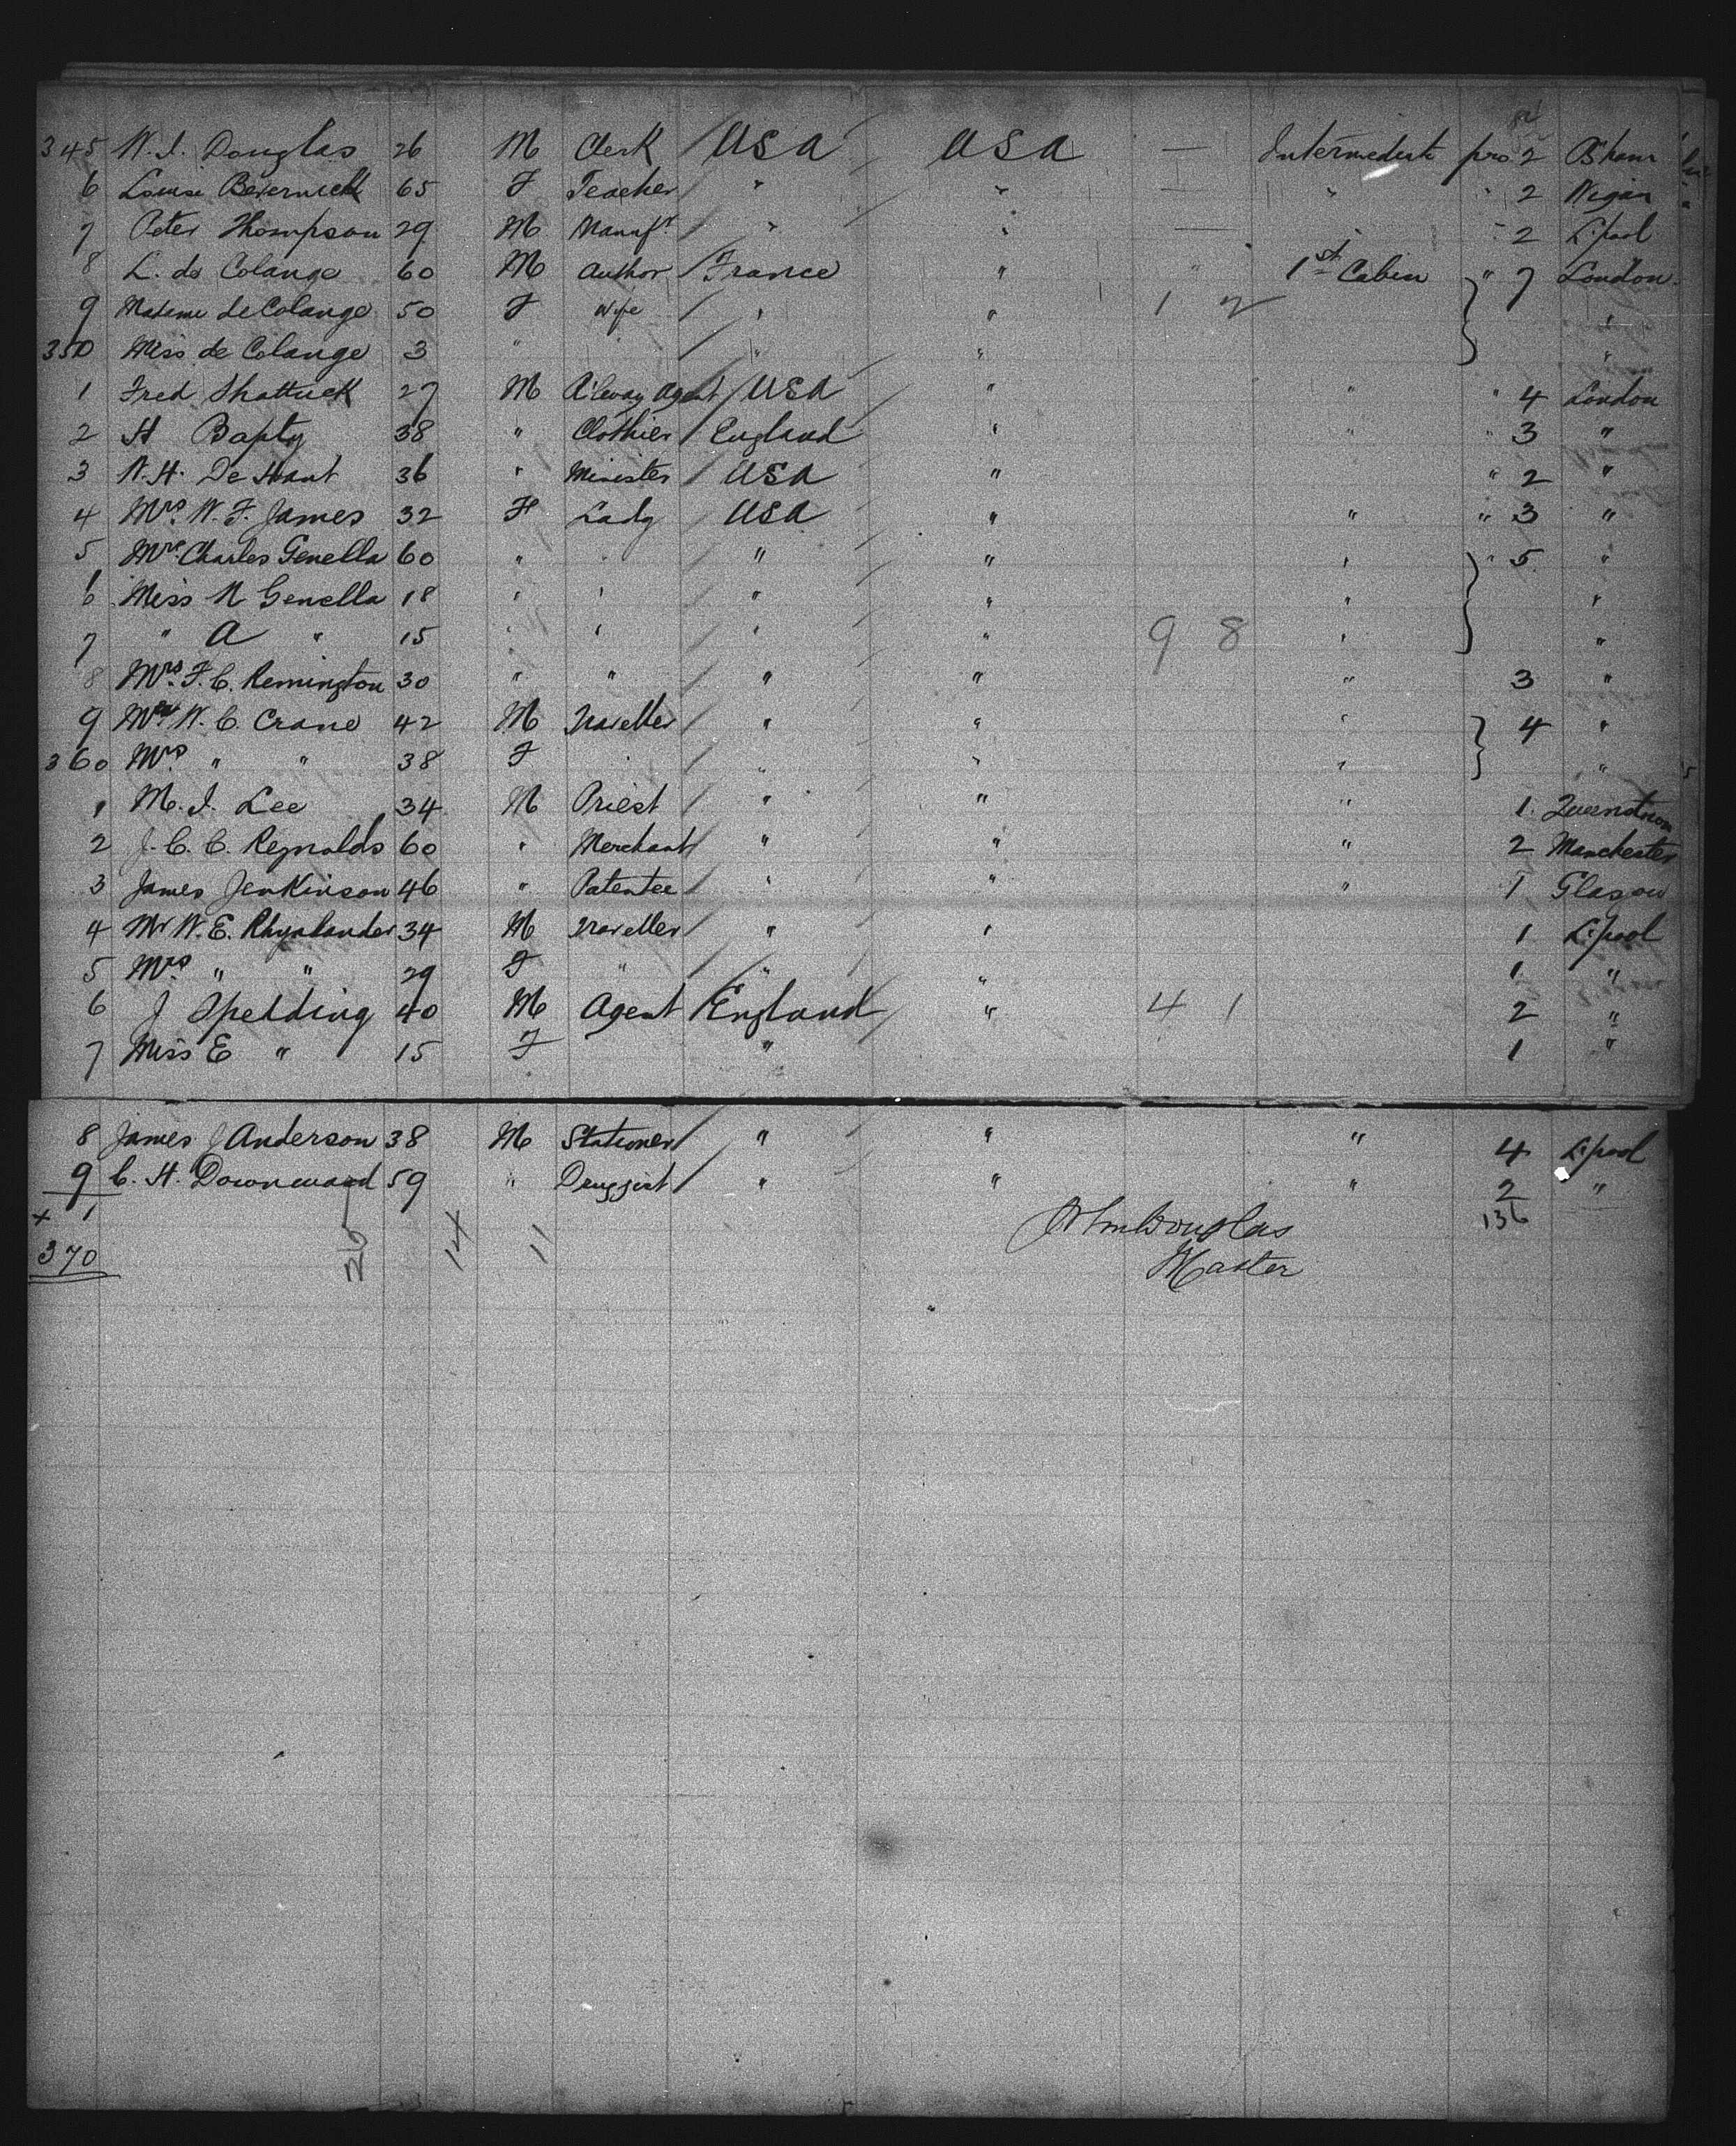 345 W. J. Douglas 26 M Clerk USA USA — Intermediate pro. 2 B'ham
6 Louise Beverwick 65 F Teacher " " — " " 2 Wigan
7 Peter Thompson 29 M Manufr " " — " " 2 L'pool
8 L. de Colange 60 M Author France " " 1st Cabin " 7 London
9 Madame de Colange 50 F Wife " " 1 2 "
350 Miss de Colange 3 " " " "
1 Fred Shattuck 27 M R'lway Agent USA " " " 4 London
2 H Bapty 38 " Clothier England " " " 3 "
3 W. H. De Hart 36 " Minister USA " " 2 "
4 Mrs. W. F. James 32 F Lady USA " " " 3 "
5 Mrs. Charles Genella 60 " " " " " " 5 "
6 Miss N Genella 18 " " " " " "
7 " A " 15 " " " " 9 8 " "
8 Mrs. F. C. Remington 30 " " " " " 3 "
9 Mr W. C. Crane 42 M Traveller " " " 4 "
360 Mrs. " " 38 F " " " " "
1 M. J. Lee 34 M Priest " " " 1 Queenstown
2 J. C. C. Reynolds 60 " Merchant " " " 2 Manchester
3 James Jenkinson 46 " Patentee " " " 1 Glasgow
4 Mr W. E. Rhynlander 34 M Traveller " " 1 L'pool
5 Mrs. " " 29 F " " " 1 "
6 J Spedding 40 M Agent England " 4 1 2 "
7 Miss E " 15 F " 1 "
8 James J Anderson 38 M Stationer " " " 4 L'pool
9 C. H. Downward 59 " Druggist " " " 2 "
+ 1 136
370 26 14 11
Wm Douglas
Master